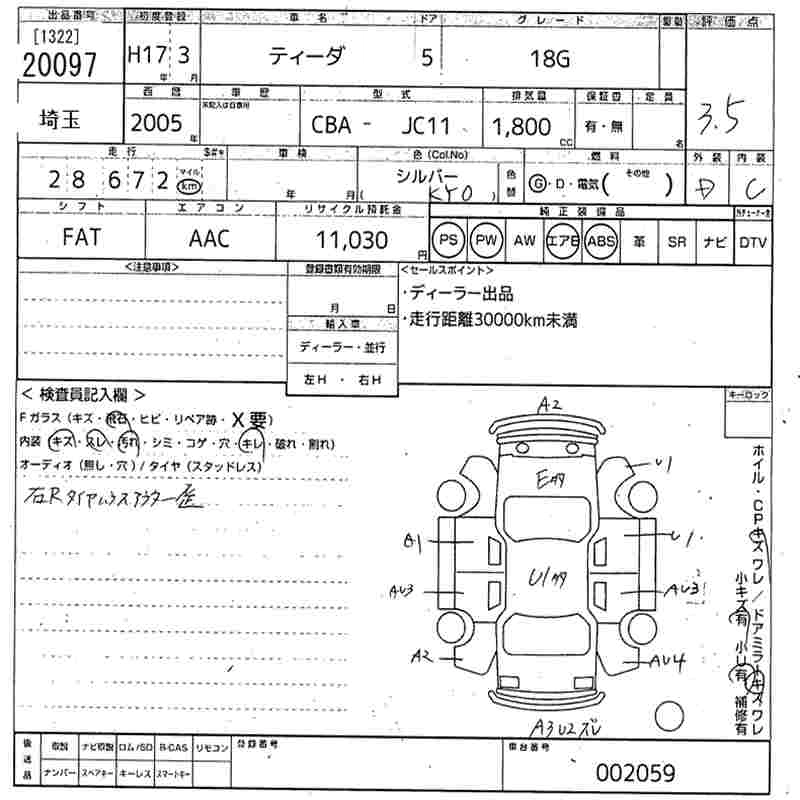 出品番号 初度登録 車名 ドア グレード 駆動 評価点
[1322]
20097 H17 3 ティーダ 5 18G
年 月
西暦 車歴 型式 排気量 保証書 定員
未記入は自家用
埼玉 2005 CBA - JC11 1,800 有・無 3.5
年 CC 名
走行 車検 色 (Col.No) 燃料 外装 内装
28 672 マイル km シルバー 色替 G・D・電気 (その他 ) D C
年 月 ( KY0 )
シフト エアコン リサイクル預託金 純正装備品
FAT AAC 11,030 PS PW AW エアB ABS 革 SR ナビ DTV
円
<注意事項> 登録書類有効期限 <セールスポイント>
・ディーラー出品
月 日
・走行距離30000km未満
輸入車
ディーラー・並行
左H ・ 右H
< 検査員記入欄 > キーロック
Fガラス (キズ・飛石・ヒビ・リペア跡・X要)
内装 (キズ・スレ・汚れ・シミ・コゲ・穴・キレ・破れ・割れ)
オーディオ (無し・穴) / タイヤ (スタッドレス)
A2
E
U1
A1
U1
U1
AU3
AU3
A2
AU4
A3U2ズレ
ホイル・CPキズワレ/ドアミラーキズワレ
小キズ有 小U有 補修有
後送品 取説 ナビ取説 ロム/SD B-CAS リモコン 登録番号 車台番号
ナンバー スペアキー キーレス スマートキー 002059